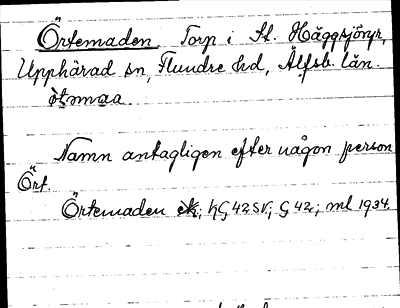 Örtemaden. Torp i St. Häggsjöryr,
Upphärad sn, Flundre hd, Älfsb. län.
Namn antagligen efter någon person
Ört.
Örtemaden ek; G 42; ml 1934.